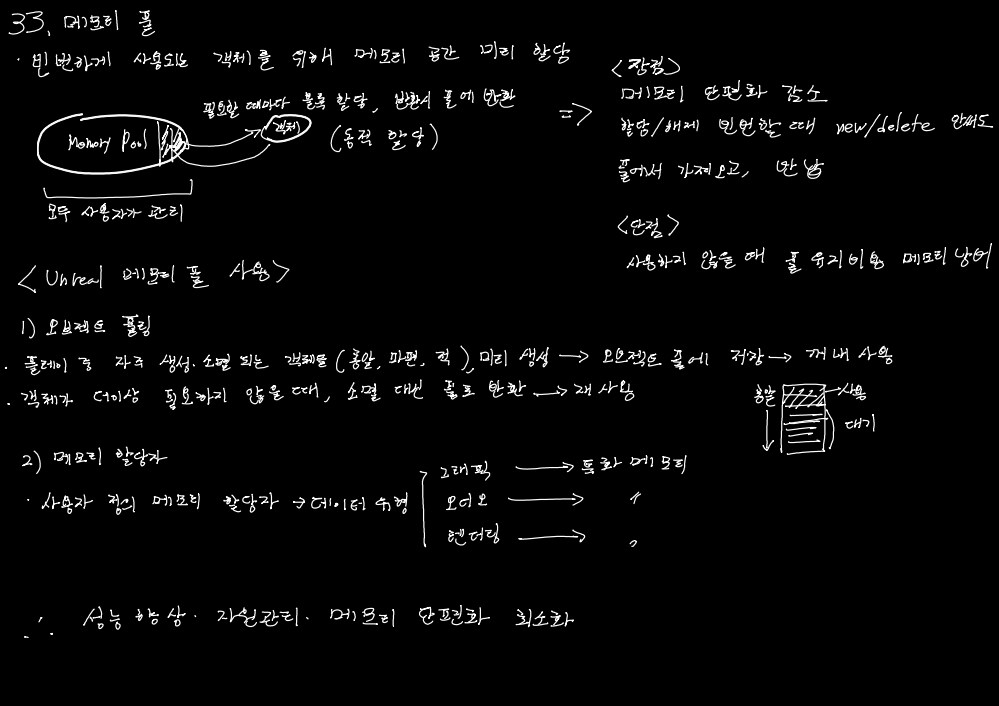 33. 메모리 풀
· 빈번하게 사용되는 객체를 위해 메모리 공간 미리 할당
필요할 때마다 블록 할당, 반환시 풀에 반환
(동적 할당)
Memory Pool
객체
모두 사용자가 관리
=>
<장점>
메모리 단편화 감소
할당/해제 빈번할 때 new/delete 안써도
풀에서 가져오고, 반납
<단점>
사용하지 않을 때 풀 유지비용 메모리 낭비
<Unreal 메모리 풀 사용>
1) 오브젝트 풀링
· 플레이 중 자주 생성·소멸 되는 객체들(총알, 파편, 적), 미리 생성 → 오브젝트 풀에 저장 → 꺼내 사용
· 객체가 더이상 필요하지 않을 때, 소멸 대신 풀로 반환 → 재 사용
총알
사용
대기
2) 메모리 할당자
· 사용자 정의 메모리 할당자 → 데이터 유형
그래픽 → 특화 메모리
오디오 → 〃
렌더링 → 〃
∴ 성능 향상· 자원관리· 메모리 단편화 최소화